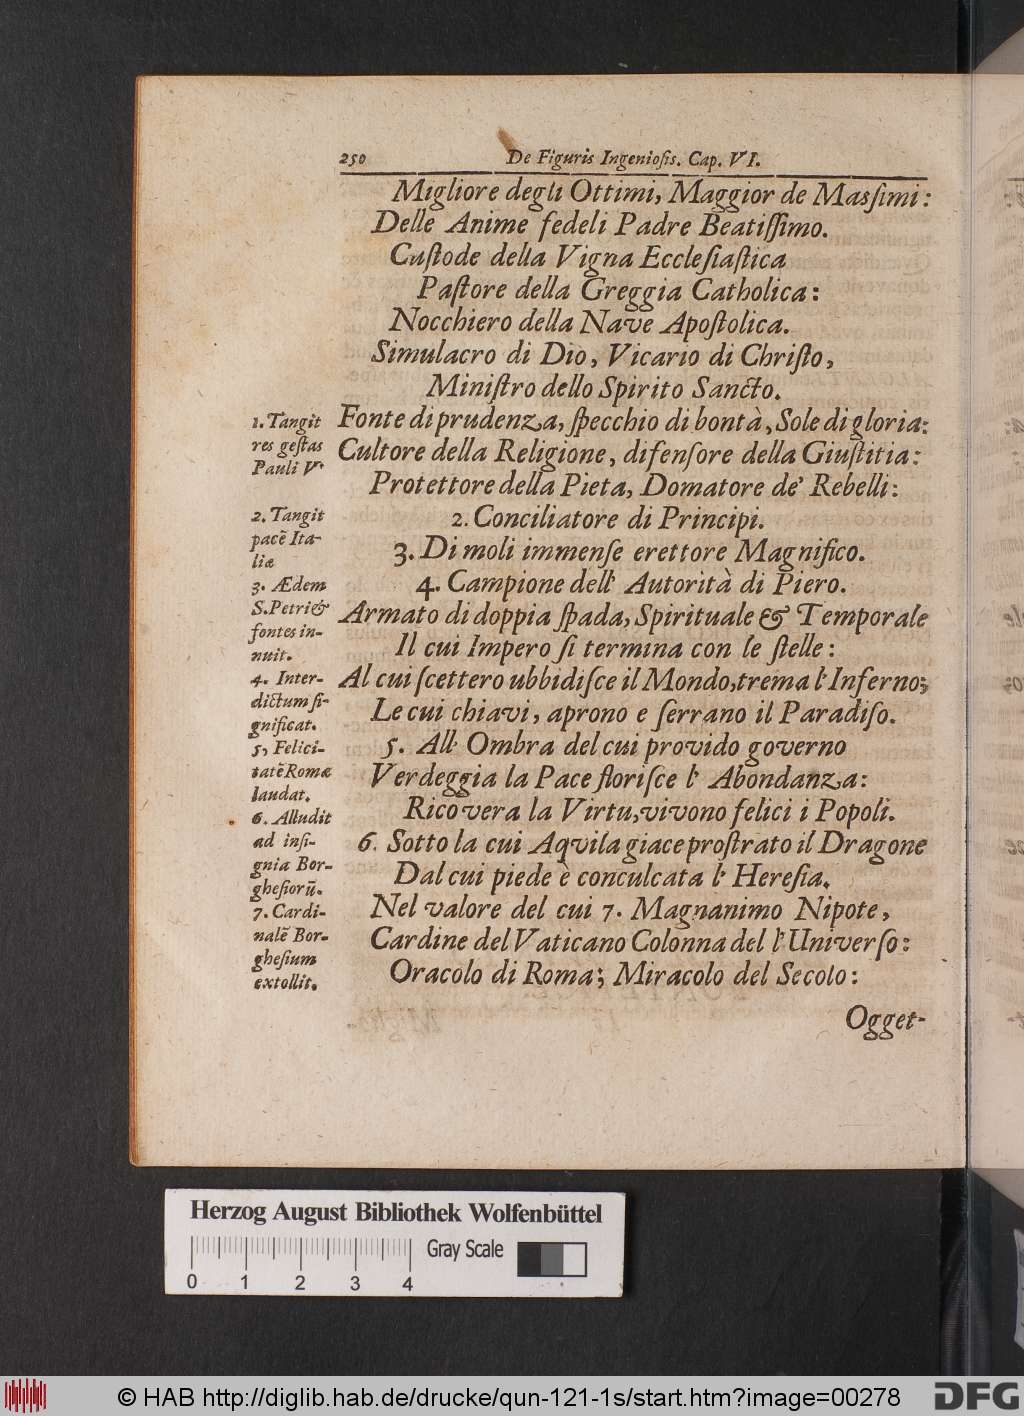 250 De Figuris Ingeniosis. Cap. VI.
Migliore degli Ottimi, Maggior de Massimi:
Delle Anime fedeli Padre Beatissimo.
Custode della Vigna Ecclesiastica
Pastore della Greggia Catholica:
Nocchiero della Nave Apostolica.
Simulacro di Dio, Vicario di Christo,
Ministro dello Spirito Sancto.
Fonte di prudenza, specchio di bontà, Sole di gloria:
Cultore della Religione, difensore della Giustitia:
Protettore della Pieta, Domatore de' Rebelli:
2. Conciliatore di Principi.
3. Di moli immense erettore Magnifico.
4. Campione dell' Autorità di Piero.
Armato di doppia spada, Spirituale & Temporale
Il cui Impero si termina con le stelle:
Al cui scettero ubbidisce il Mondo, trema l'Inferno;
Le cui chiavi, aprono e serrano il Paradiso.
5. All' Ombra del cui provido governo
Verdeggia la Pace florisce l' Abondanza:
Ricovera la Virtu, vivono felici i Popoli.
6. Sotto la cui Aqvila giace prostrato il Dragone
Dal cui piede è conculcata l' Heresia.
Nel valore del cui 7. Magnanimo Nipote,
Cardine del Vaticano Colonna del l'Universo:
Oracolo di Roma; Miracolo del Secolo:
Ogget-
1. Tangit
res gestas
Pauli V.
2. Tangit
pacē Ita-
liæ
3. Ædem
S. Petri &
fontes in-
nuit.
4. Inter-
dictum si-
gnificat.
5, Felici-
tatē Romæ
laudat.
6. Alludit
ad insi-
gnia Bor-
ghesiorū.
7. Cardi-
nalē Bor-
ghesium
extollit.
Herzog August Bibliothek Wolfenbüttel
Gray Scale
0 1 2 3 4
© HAB http://diglib.hab.de/drucke/qun-121-1s/start.htm?image=00278
DFG